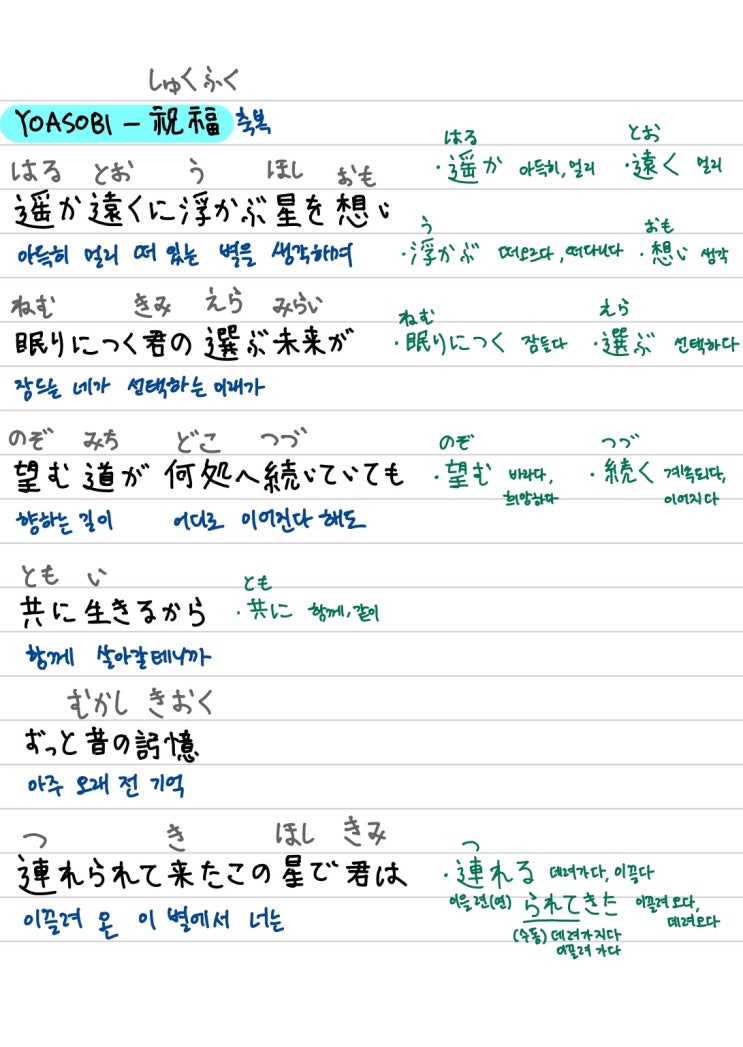 しゅくふく
YOASOBI - 祝福 축복
はる とお う ほし おも
遥か遠くに浮かぶ星を想い
아득히 멀리 떠 있는 별을 생각하며
はる とお
·遥か 아득히, 멀리 ·遠く 멀리
う おも
·浮かぶ 떠오르다, 떠다니다 ·想い 생각
ねむ きみ えら みらい
眠りにつく君の選ぶ未来が
잠드는 네가 선택하는 미래가
ねむ えら
·眠りにつく 잠들다 ·選ぶ 선택하다
のぞ みち どこ つづ
望む道が何処へ続いていても
향하는 길이 어디로 이어진다 해도
のぞ つづ
·望む 바라다, 희망하다 ·続く 계속되다, 이어지다
とも い
共に生きるから
함께 살아갈테니까
とも
·共に 함께, 같이
むかし きおく
ずっと昔の記憶
아주 오래 전 기억
つ き ほし きみ
連れられて来たこの星で君は
이끌려 온 이 별에서 너는
つ
·連れる 데려가다, 이끌다
이을 련(연) られてきた 이끌려 오다, 데려오다
(수동) 데려가지다
이끌려 가다